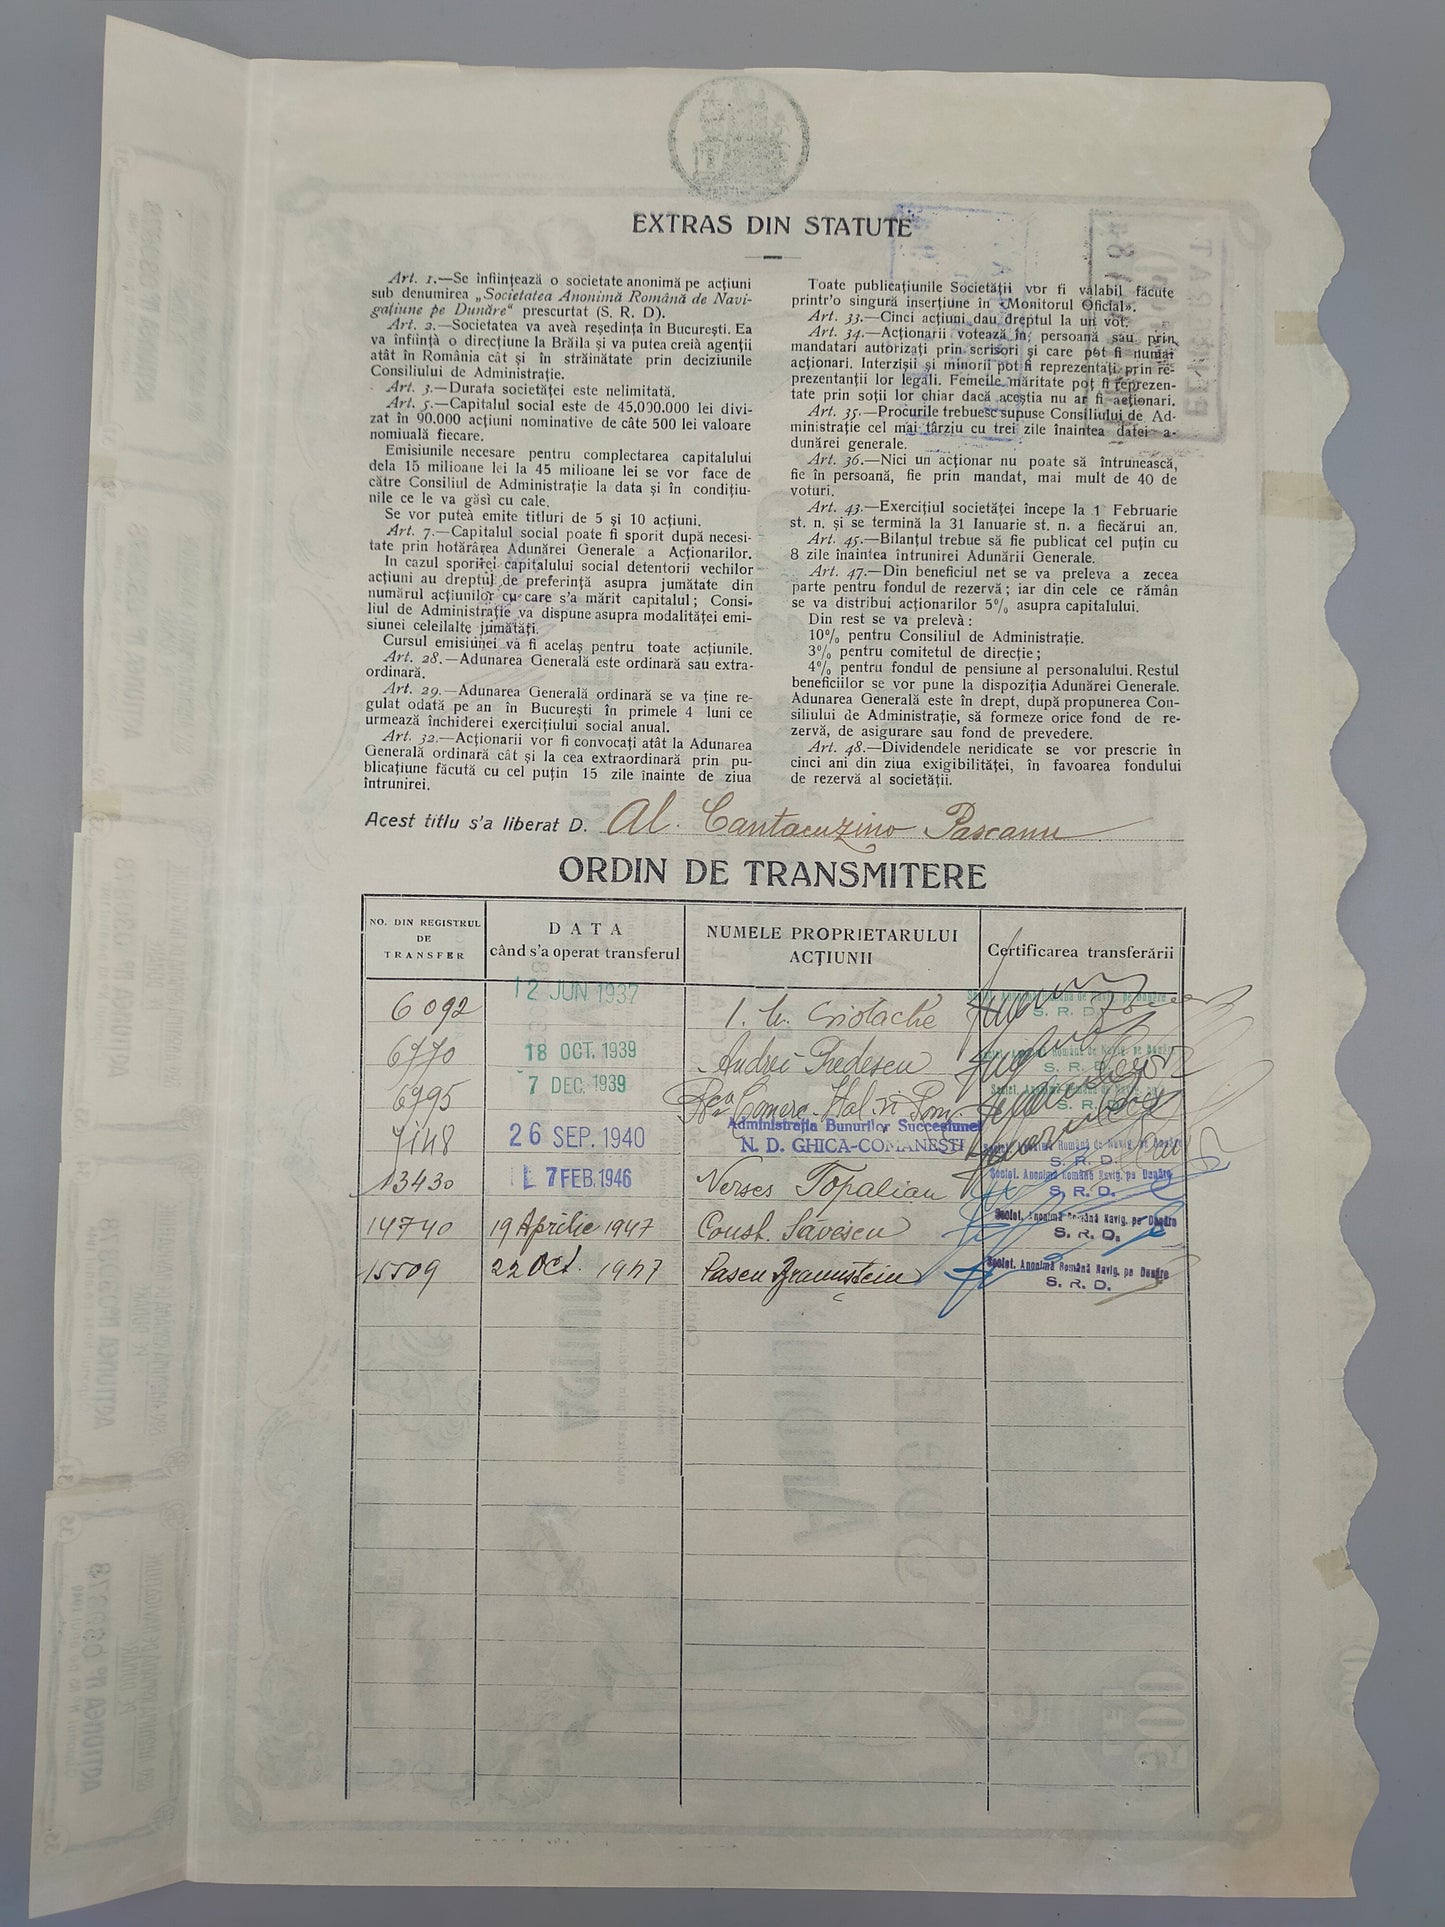 EXTRAS DIN STATUTE
Art. 1.—Se înființează o societate anonimă pe acțiuni
sub denumirea „Societatea Anonimă Română de Navi-
gațiune pe Dunăre“ prescurtat (S. R. D).
Art. 2.—Societatea va aveà reședința în București. Ea
va înființà o direcțiune la Brăila și va putea creià agenții
atât în România cât și în străinătate prin deciziunile
Consiliului de Administrație.
Art. 3.—Durata societăței este nelimitată.
Art. 5.—Capitalul social este de 45.000.000 lei divi-
zat în 90.000 acțiuni nominative de câte 500 lei valoare
nomiuală fiecare.
Emisiunile necesare pentru complectarea capitalului
dela 15 milioane lei la 45 milioane lei se vor face de
către Consiliul de Administrație la data și în condițiu-
nile ce le va găsì cu cale.
Se vor puteà emite titluri de 5 și 10 acțiuni.
Art. 7.—Capitalul social poate fi sporit după necesi-
tate prin hotărârea Adunărei Generale a Acționarilor.
In cazul sporirei capitalului social detentorii vechilor
acțiuni au dreptul de preferință asupra jumătate din
numărul acțiunilor cu care s'a mărit capitalul; Consi-
liul de Administrație va dispune asupra modalităței emi-
siunei celeilalte jumătăți.
Cursul emisiunei va fi acelaș pentru toate acțiunile.
Art. 28.—Adunarea Generală este ordinară sau extra-
ordinară.
Art. 29.—Adunarea Generală ordinară se va ține re-
gulat odată pe an în București în primele 4 luni ce
urmează închiderei exercițiului social anual.
Art. 32.—Acționarii vor fi convocați atât la Adunarea
Generală ordinară cât și la cea extraordinară prin pu-
blicațiune făcută cu cel puțin 15 zile înainte de ziua
întrunirei.
Toate publicațiunile Societății vor fi valabil făcute
printr'o singură inserțiune în «Monitorul Oficial».
Art. 33.—Cinci acțiuni dau dreptul la un vot.
Art. 34.—Acționarii votează în persoană sau prin
mandatari autorizați prin scrisori și care pot fi numai
acționari. Interzișii și minorii pot fi reprezentați prin re-
prezentanții lor legali. Femeile măritate pot fi reprezen-
tate prin soții lor chiar dacă aceștia nu ar fi acționari.
Art. 35.—Procurile trebuesc supuse Consiliului de Ad-
ministrație cel mai târziu cu trei zile înaintea datei a-
dunărei generale.
Art. 36.—Nici un acționar nu poate să întrunească,
fie în persoană, fie prin mandat, mai mult de 40 de
voturi.
Art. 43.—Exercițiul societăței începe la 1 Februarie
st. n. și se termină la 31 Ianuarie st. n. a fiecărui an.
Art. 45.—Bilanțul trebue să fie publicat cel puțin cu
8 zile înaintea întrunirei Adunării Generale.
Art. 47.—Din beneficiul net se va preleva a zecea
parte pentru fondul de rezervă; iar din cele ce rămân
se va distribui acționarilor 5% asupra capitalului.
Din rest se va prelevà:
10% pentru Consiliul de Administrație.
3% pentru comitetul de direcție;
4% pentru fondul de pensiune al personalului. Restul
beneficiilor se vor pune la dispoziția Adunărei Generale.
Adunarea Generală este în drept, după propunerea Con-
siliului de Administrație, să formeze orice fond de re-
zervă, de asigurare sau fond de prevedere.
Art. 48.—Dividendele neridicate se vor prescrie în
cinci ani din ziua exigibilităței, în favoarea fondului
de rezervă al societății.
Acest titlu s'a liberat D. Al. Cantacuzino Pascanu
ORDIN DE TRANSMITERE
NO. DIN REGISTRUL DE TRANSFER
DATA când s'a operat transferul
NUMELE PROPRIETARULUI ACȚIUNII
Certificarea transferării
6092 12 JUN 1937 Societ. Anonimă Română de Navig. pe Dunăre
S. R. D.
6770 18 OCT. 1939 Andrei Predescu Societ. Anonimă Română de Navig. pe Dunăre
S. R. D.
6995 7 DEC. 1939 S. R. D.
7148 26 SEP. 1940 Administrația Bunurilor Succesiunei
N. D. GHICA-COMANEȘTI Societ. Anonimă Română de Navig. pe Dunăre
S. R. D.
13430 7 FEB. 1946 Nerses Topalian Societ. Anonimă Română Navig. pe Dunăre
S. R. D.
14740 19 Aprilie 1947 Const. Săvescu Societ. Anonimă Română Navig. pe Dunăre
S. R. D.
15509 22 Oct. 1947 Pascu Braunștein Societ. Anonimă Română Navig. pe Dunăre
S. R. D.